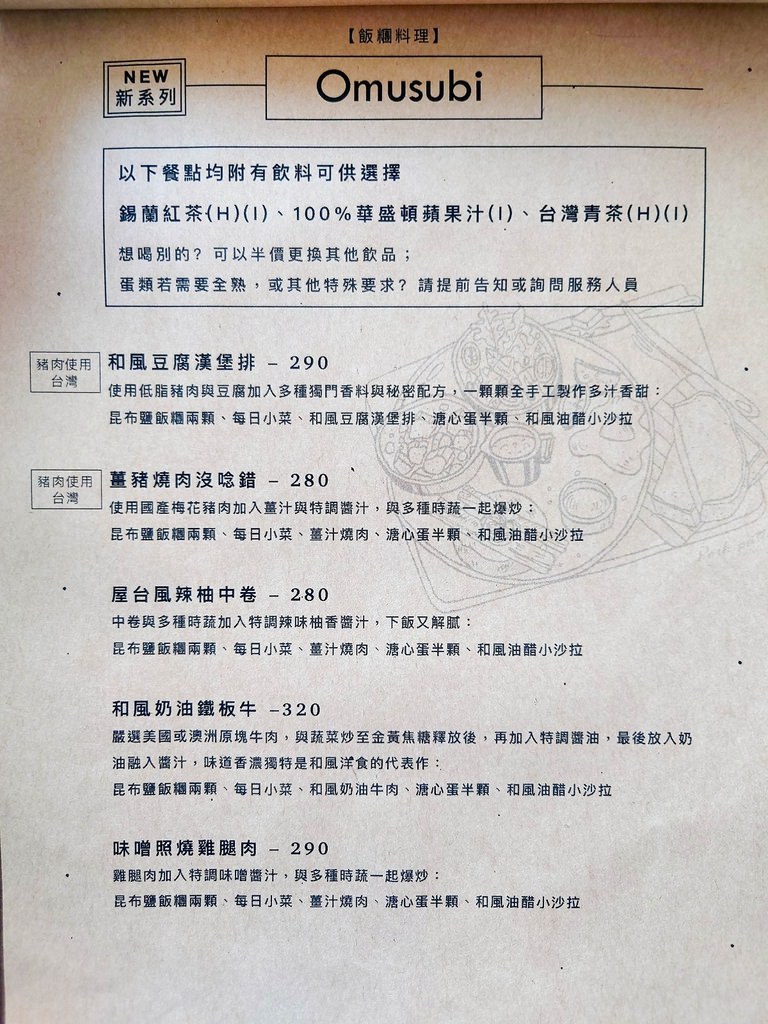 【飯糰料理】
NEW
新系列
Omusubi
以下餐點均附有飲料可供選擇
錫蘭紅茶(H)(I)、100%華盛頓蘋果汁(I)、台灣青茶(H)(I)
想喝別的? 可以半價更換其他飲品；
蛋類若需要全熟，或其他特殊要求? 請提前告知或詢問服務人員
豬肉使用
台灣
和風豆腐漢堡排 – 290
使用低脂豬肉與豆腐加入多種獨門香料與秘密配方，一顆顆全手工製作多汁香甜：
昆布鹽飯糰兩顆、每日小菜、和風豆腐漢堡排、溏心蛋半顆、和風油醋小沙拉
豬肉使用
台灣
薑豬燒肉沒唸錯 – 280
使用國產梅花豬肉加入薑汁與特調醬汁，與多種時蔬一起爆炒：
昆布鹽飯糰兩顆、每日小菜、薑汁燒肉、溏心蛋半顆、和風油醋小沙拉
屋台風辣柚中卷 – 280
中卷與多種時蔬加入特調辣味柚香醬汁，下飯又解膩：
昆布鹽飯糰兩顆、每日小菜、薑汁燒肉、溏心蛋半顆、和風油醋小沙拉
和風奶油鐵板牛 –320
嚴選美國或澳洲原塊牛肉，與蔬菜炒至金黃焦糖釋放後，再加入特調醬油，最後放入奶
油融入醬汁，味道香濃獨特是和風洋食的代表作：
昆布鹽飯糰兩顆、每日小菜、和風奶油牛肉、溏心蛋半顆、和風油醋小沙拉
味噌照燒雞腿肉 – 290
雞腿肉加入特調味噌醬汁，與多種時蔬一起爆炒：
昆布鹽飯糰兩顆、每日小菜、薑汁燒肉、溏心蛋半顆、和風油醋小沙拉